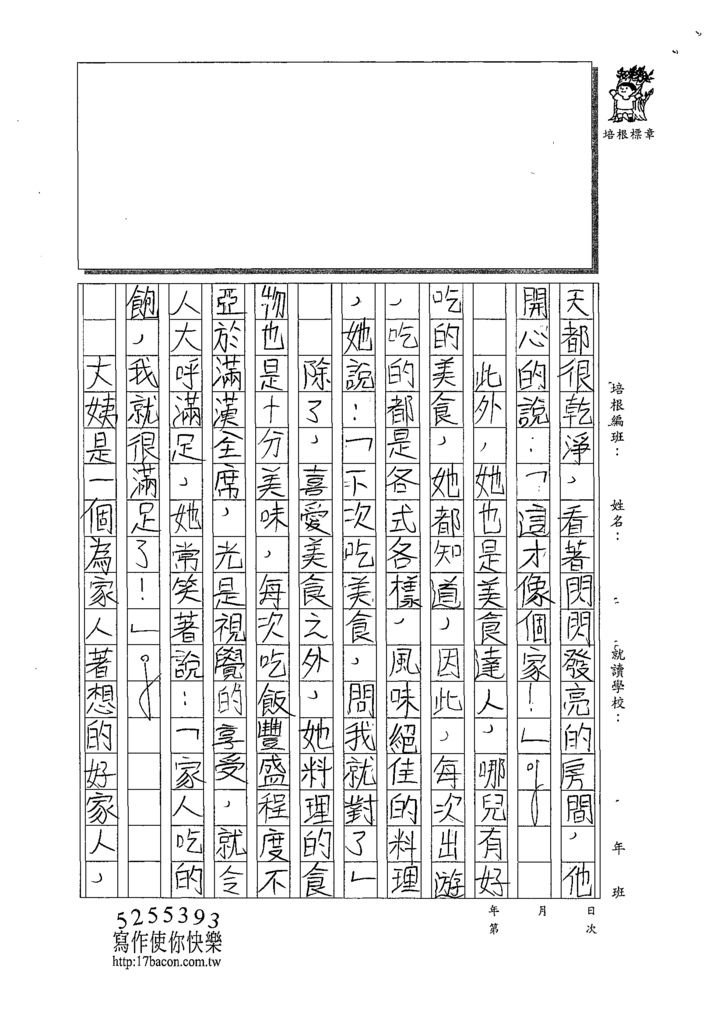 培根標章
培根編班：
姓名：
就讀學校：
年 班
天都很乾淨，看著閃閃發亮的房間，他
開心的說：「這才像個家！」
此外，她也是美食達人，哪兒有好
吃的美食，她都知道，因此，每次出遊
，吃的都是各式各樣、風味絕佳的料理
，她說：「下次吃美食，問我就對了」
除了，喜愛美食之外，她料理的食
物也是十分美味，每次吃飯豐盛程度不
亞於滿漢全席，光是視覺的享受，就令
人大呼滿足，她常笑著說：「家人吃的
飽，我就很滿足了！」
大姨是一個為家人著想的好家人，
年 月 日
第 次
5255393
寫作使你快樂
http:17bacon.com.tw